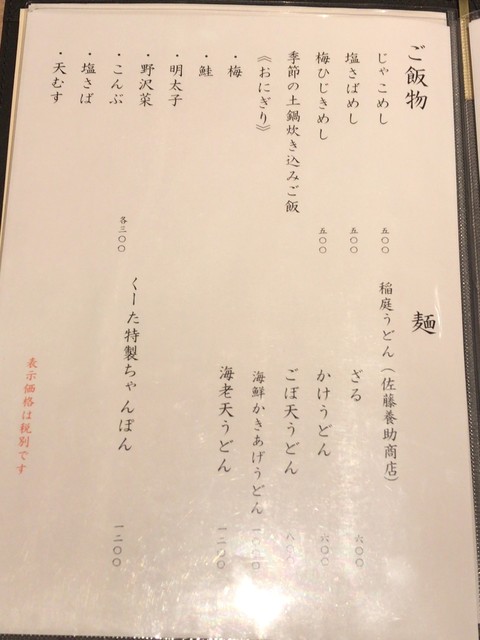 ご飯物
じゃこめし 五〇〇
塩さばめし 五〇〇
梅ひじきめし 五〇〇
季節の土鍋炊き込みご飯
《おにぎり》
・梅
・鮭
・明太子
・野沢菜
・こんぶ 各三〇〇
・塩さば
・天むす
麺
稲庭うどん(佐藤養助商店)
ざる 六〇〇
かけうどん 六〇〇
ごぼ天うどん 八〇〇
海鮮かきあげうどん
海老天うどん 一二〇〇
くーた特製ちゃんぽん 一二〇〇
表示価格は税別です